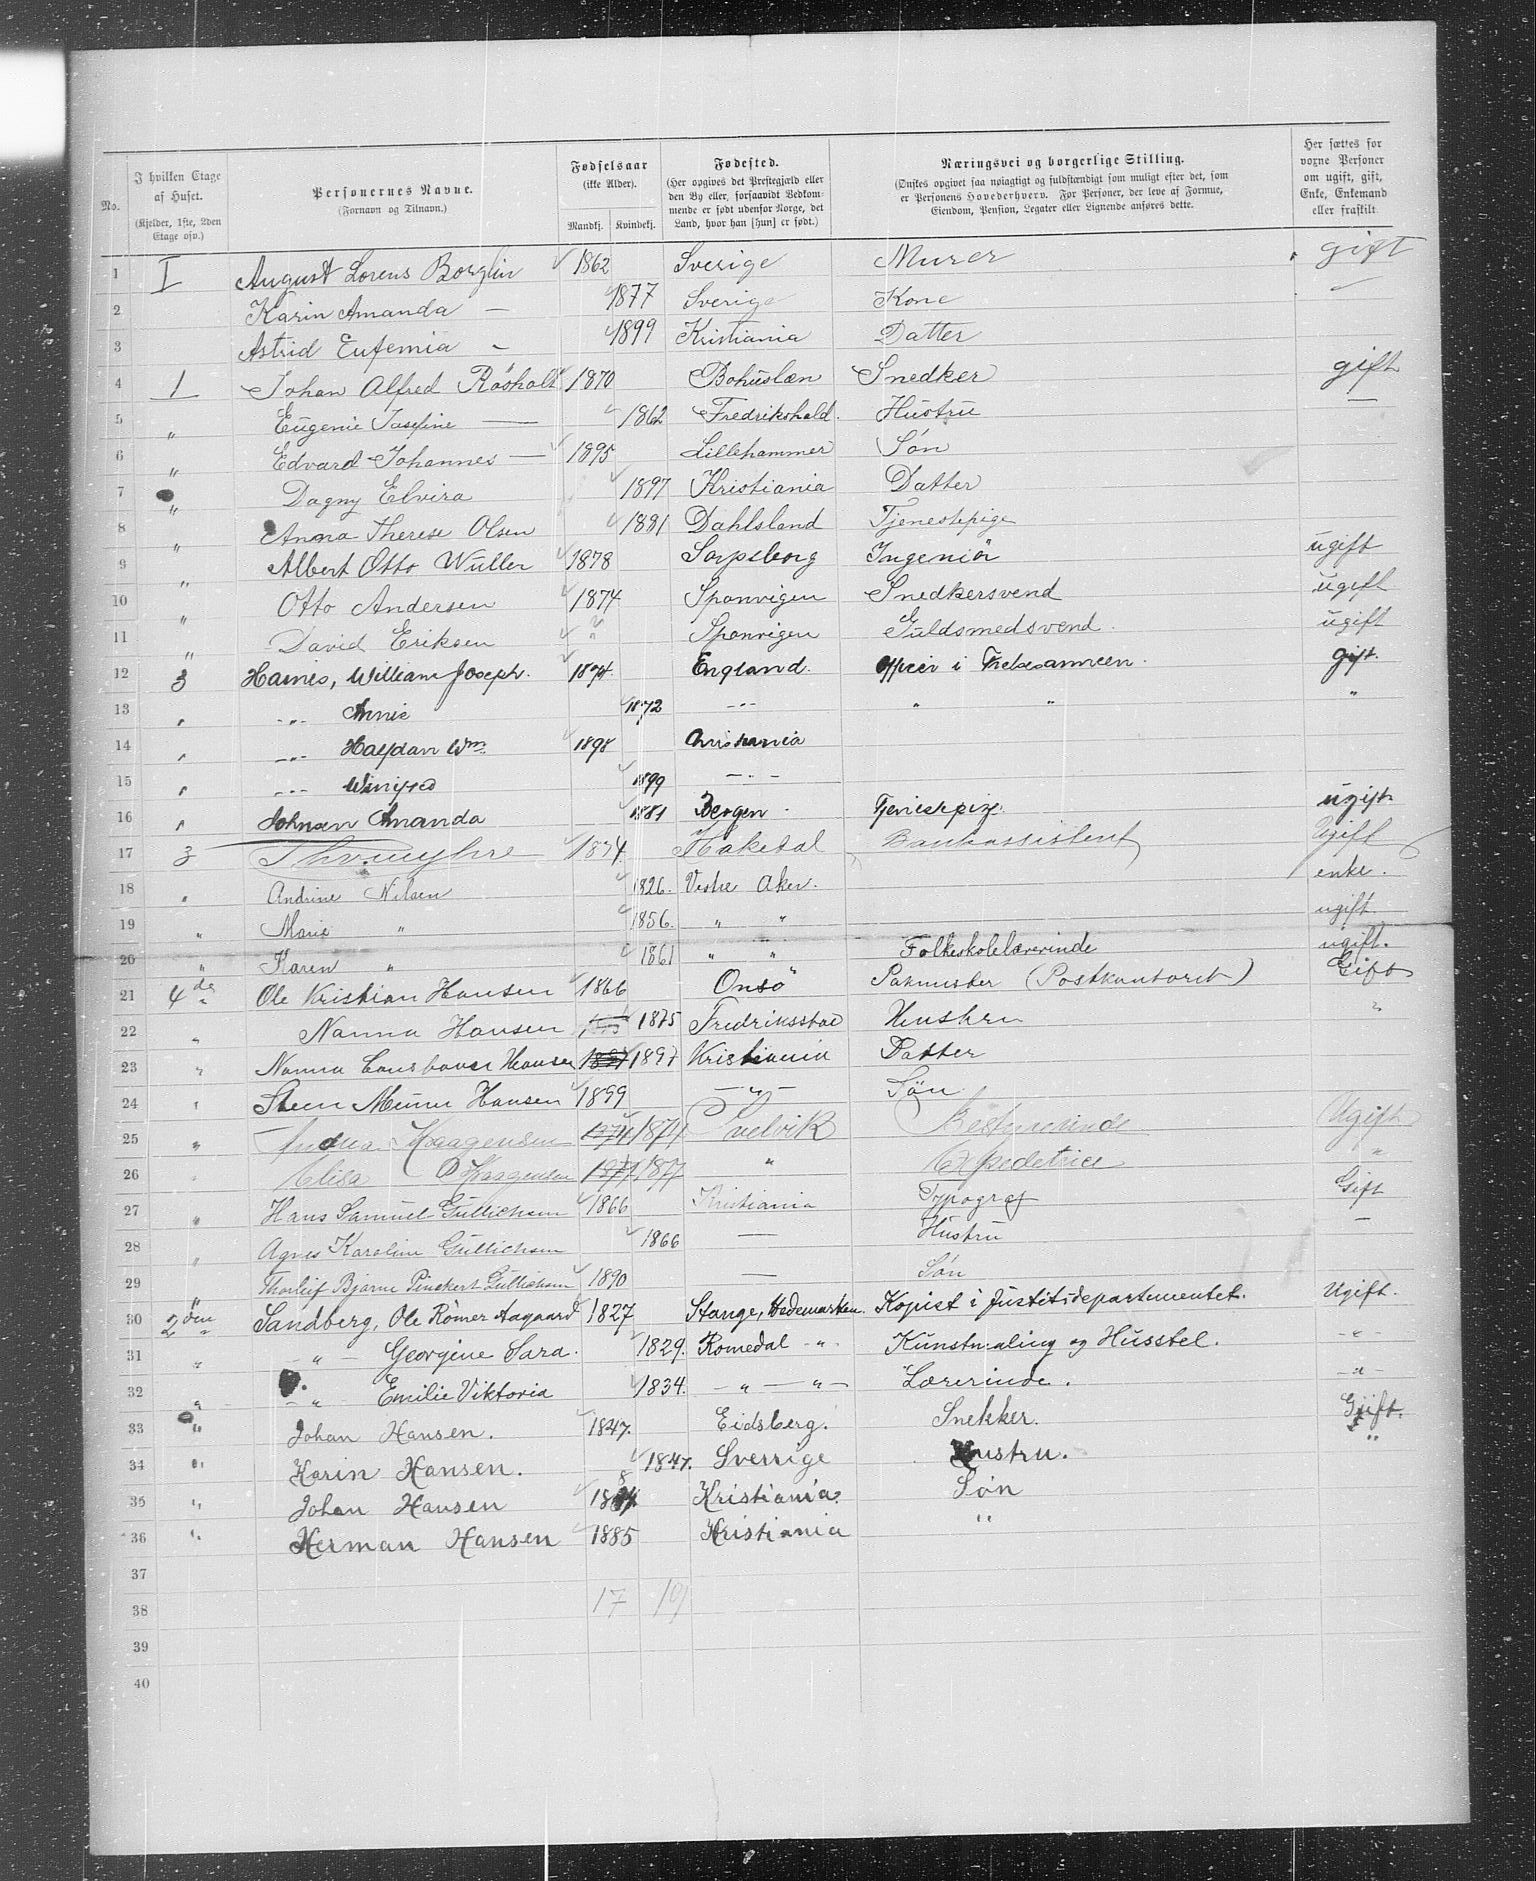 No.
I hvilken Etage af Huset.
(Kjelder, 1ste, 2den Etage osv.)
Personernes Navne.
(Fornavn og Tilnavn.)
Fødselsaar
(ikke Alder).
Mandkj. Kvindekj.
Fødested.
(Her opgives det Prestegjæld eller den By eller, forsaavidt Vedkommende er født udenfor Norge, det Land, hvor han [hun] er født.)
Næringsvei og borgerlige Stilling.
(Ønskes opgivet saa nøiagtigt og fuldstændigt som muligt efter det, som er Personens Hovederhverv. For Personer, der leve af Formue, Eiendom, Pension, Legater eller Lignende anføres dette.
Her sættes for voxne Personer om ugift, gift, Enke, Enkemand eller fraskilt
1 I August Lorens Borglin 1862 Sverige Murer gift
2 Karin Amanda — 1877 Sverige Kone —
3 Astrid Eufemia - 1899 Kristiania Datter
4 1 Johan Alfred Røsholt 1870 Bohuslæn Snedker gift
5 " Eugenie Josefine — 1862 Fredrikshald. Hustru —
6 " Edvard Johannes — 1895 Lillehammer Søn
7 " Dagny Elvira 1897 Kristiania Datter
8 " Anna Therese Olsen 1881 Dahlsland Tjenestepige
9 " Albert Otto Wüller 1878 Sarpsborg Ingeniör ugift
10 " Otto Andersen 1874 Sponvigen Snedkersvend ugift
11 " David Eriksen " Sponvigen Guldsmedsvend. ugift
12 3 Haines, William Joseph. 1874 England. Officer i Frelsesarmeen. gift.
13 " -"- Annie 1872 -"- " " "
14 " -"- Halfdan Wm 1898 Christiania
15 " -"- Winifred 1899 -"-
16 " Johnsen Amanda 1881 Bergen. Tjenestepige. ugift
17 3 1874 Haketal Bankassistent Ugift
18 " Andrine Nilsen 1826. Vestre Aker. enke.
19 " Marie " 1856. " " ugift
20 " Karen " 1861 " " Folkeskolelærerinde ugift.
21 4de " Ole Kristian Hansen 1866 Onsö Pakmester (Postkontoret) Gift
22 " Nanna Hansen 1875 Fredriksstad Hustru "
23 " Nanna Hansen 1897 Kristiania Datter
24 " Hansen 1899 —"— Søn
25 " Andrea Haagensen 1874 1874 Svelvik Bestyrerinde Ugift
26 " Elisa Haagensen 1877 1877 " Expeditrice "
27 " Hans Samuel Gullichsen 1866 Kristiania Typograf Gift
28 " Agnes Karoline Gullichsen 1866 — Hustru —
29 " Thorleif Bjarne Pinckert Gullichsen 1890 — Søn
30 2den " Sandberg, Ole Römer Aagaard 1827 Stange, Hedemarken. Kopist i Justitsdepartementet. Ugift.
31 " -"- Georgine Sara. 1829. Romedal -"- Kunstmaling og Husstel. -"-
32 " -"- Emilie Viktoria 1834. —"—"— Lærerinde. -"-
33 " Johan Hansen. 1847. Eidsberg. Snekker. Gift.
34 " Karin Hansen. 1847. Sverrige Hustru. "
35 " Johan Hansen Kristiania. Søn
36 " Herman Hansen 1885 Kristiania "
37
38 17 19
39
40